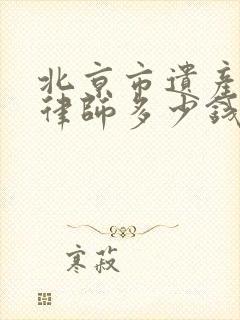 北京市遺產
律師多少錢
寒菽